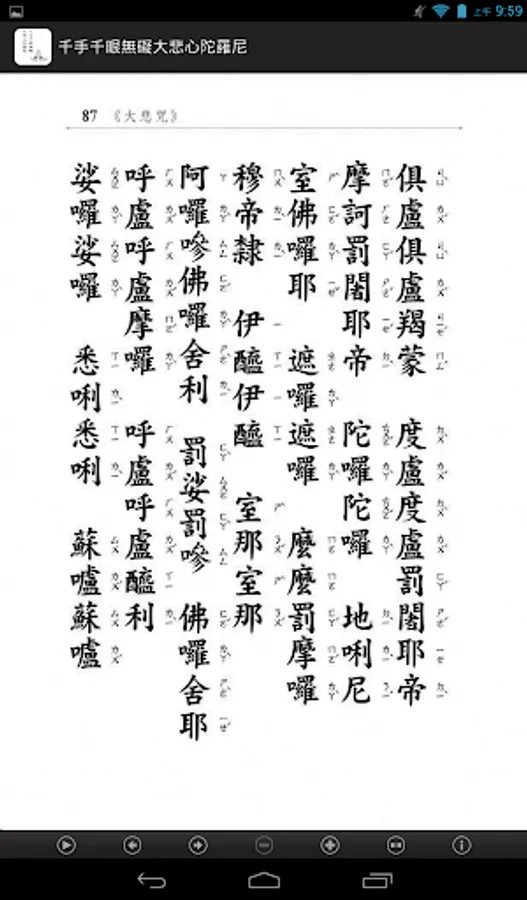 上午 9:59
千手千眼無礙大悲心陀羅尼
87 《大悲咒》
俱盧俱盧羯蒙 度盧度盧罰闍耶帝
摩訶罰闍耶帝 陀囉陀囉 地唎尼
室佛囉耶 遮囉遮囉 麼麼罰摩囉
穆帝隸 伊醯伊醯 室那室那
阿囉嘇佛囉舍利 罰娑罰嘇 佛囉舍耶
呼盧呼盧摩囉 呼盧呼盧醯利
娑囉娑囉 悉唎悉唎 蘇嚧蘇嚧